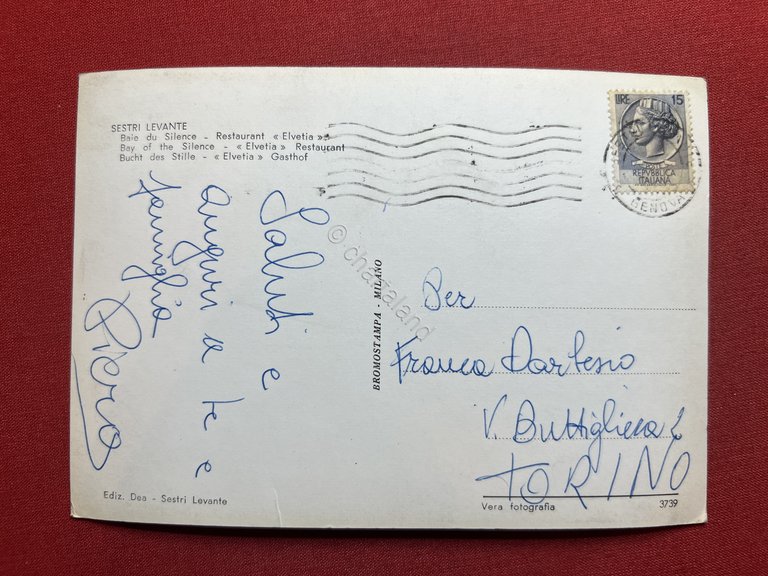 SESTRI LEVANTE
Baie du Silence - Restaurant « Elvetia »
Bay of the Silence - « Elvetia » Restaurant
Bucht des Stille - « Elvetia » Gasthof
LIRE 15
POSTE
REPVBBLICA
ITALIANA
GENOVA
Saluti e
auguri a te e
famiglia
Piero
© chazaland
BROMOSTAMPA - MILANO
Per
Franca Dartesio
V. Buttigliera 2
TORINO
Ediz. Dea - Sestri Levante
Vera fotografia
3739